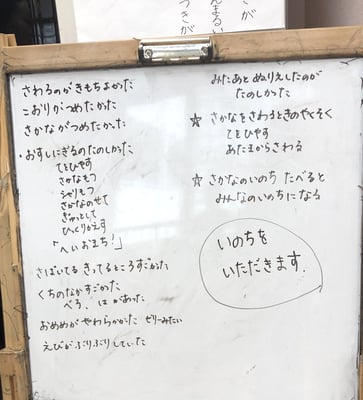 が
さ
んまるい
つきが
さわるのがきもちよかた
こおりがつめたかた
さかながつめたかた
・おすしにぎるのたのしかた
てをひやす
さかなもつ
シャリもつ
さかなのせて
ぎゅっとして
ひっくりかえす
「へいおまち!」
さばいてる きってるところすごかた
くちのなかすごかた
べろ、はがあった
おめめがやわらかかた ゼリーみたい
えびがぷりぷりしていた
みたあとぬりえしたのが
たのしかた
☆ さかなをさわるときのやくそく
てをひやす
あたまからさわる
☆ さかなのいのち たべると
みんなのいのちになる
いのちを
いただきます.